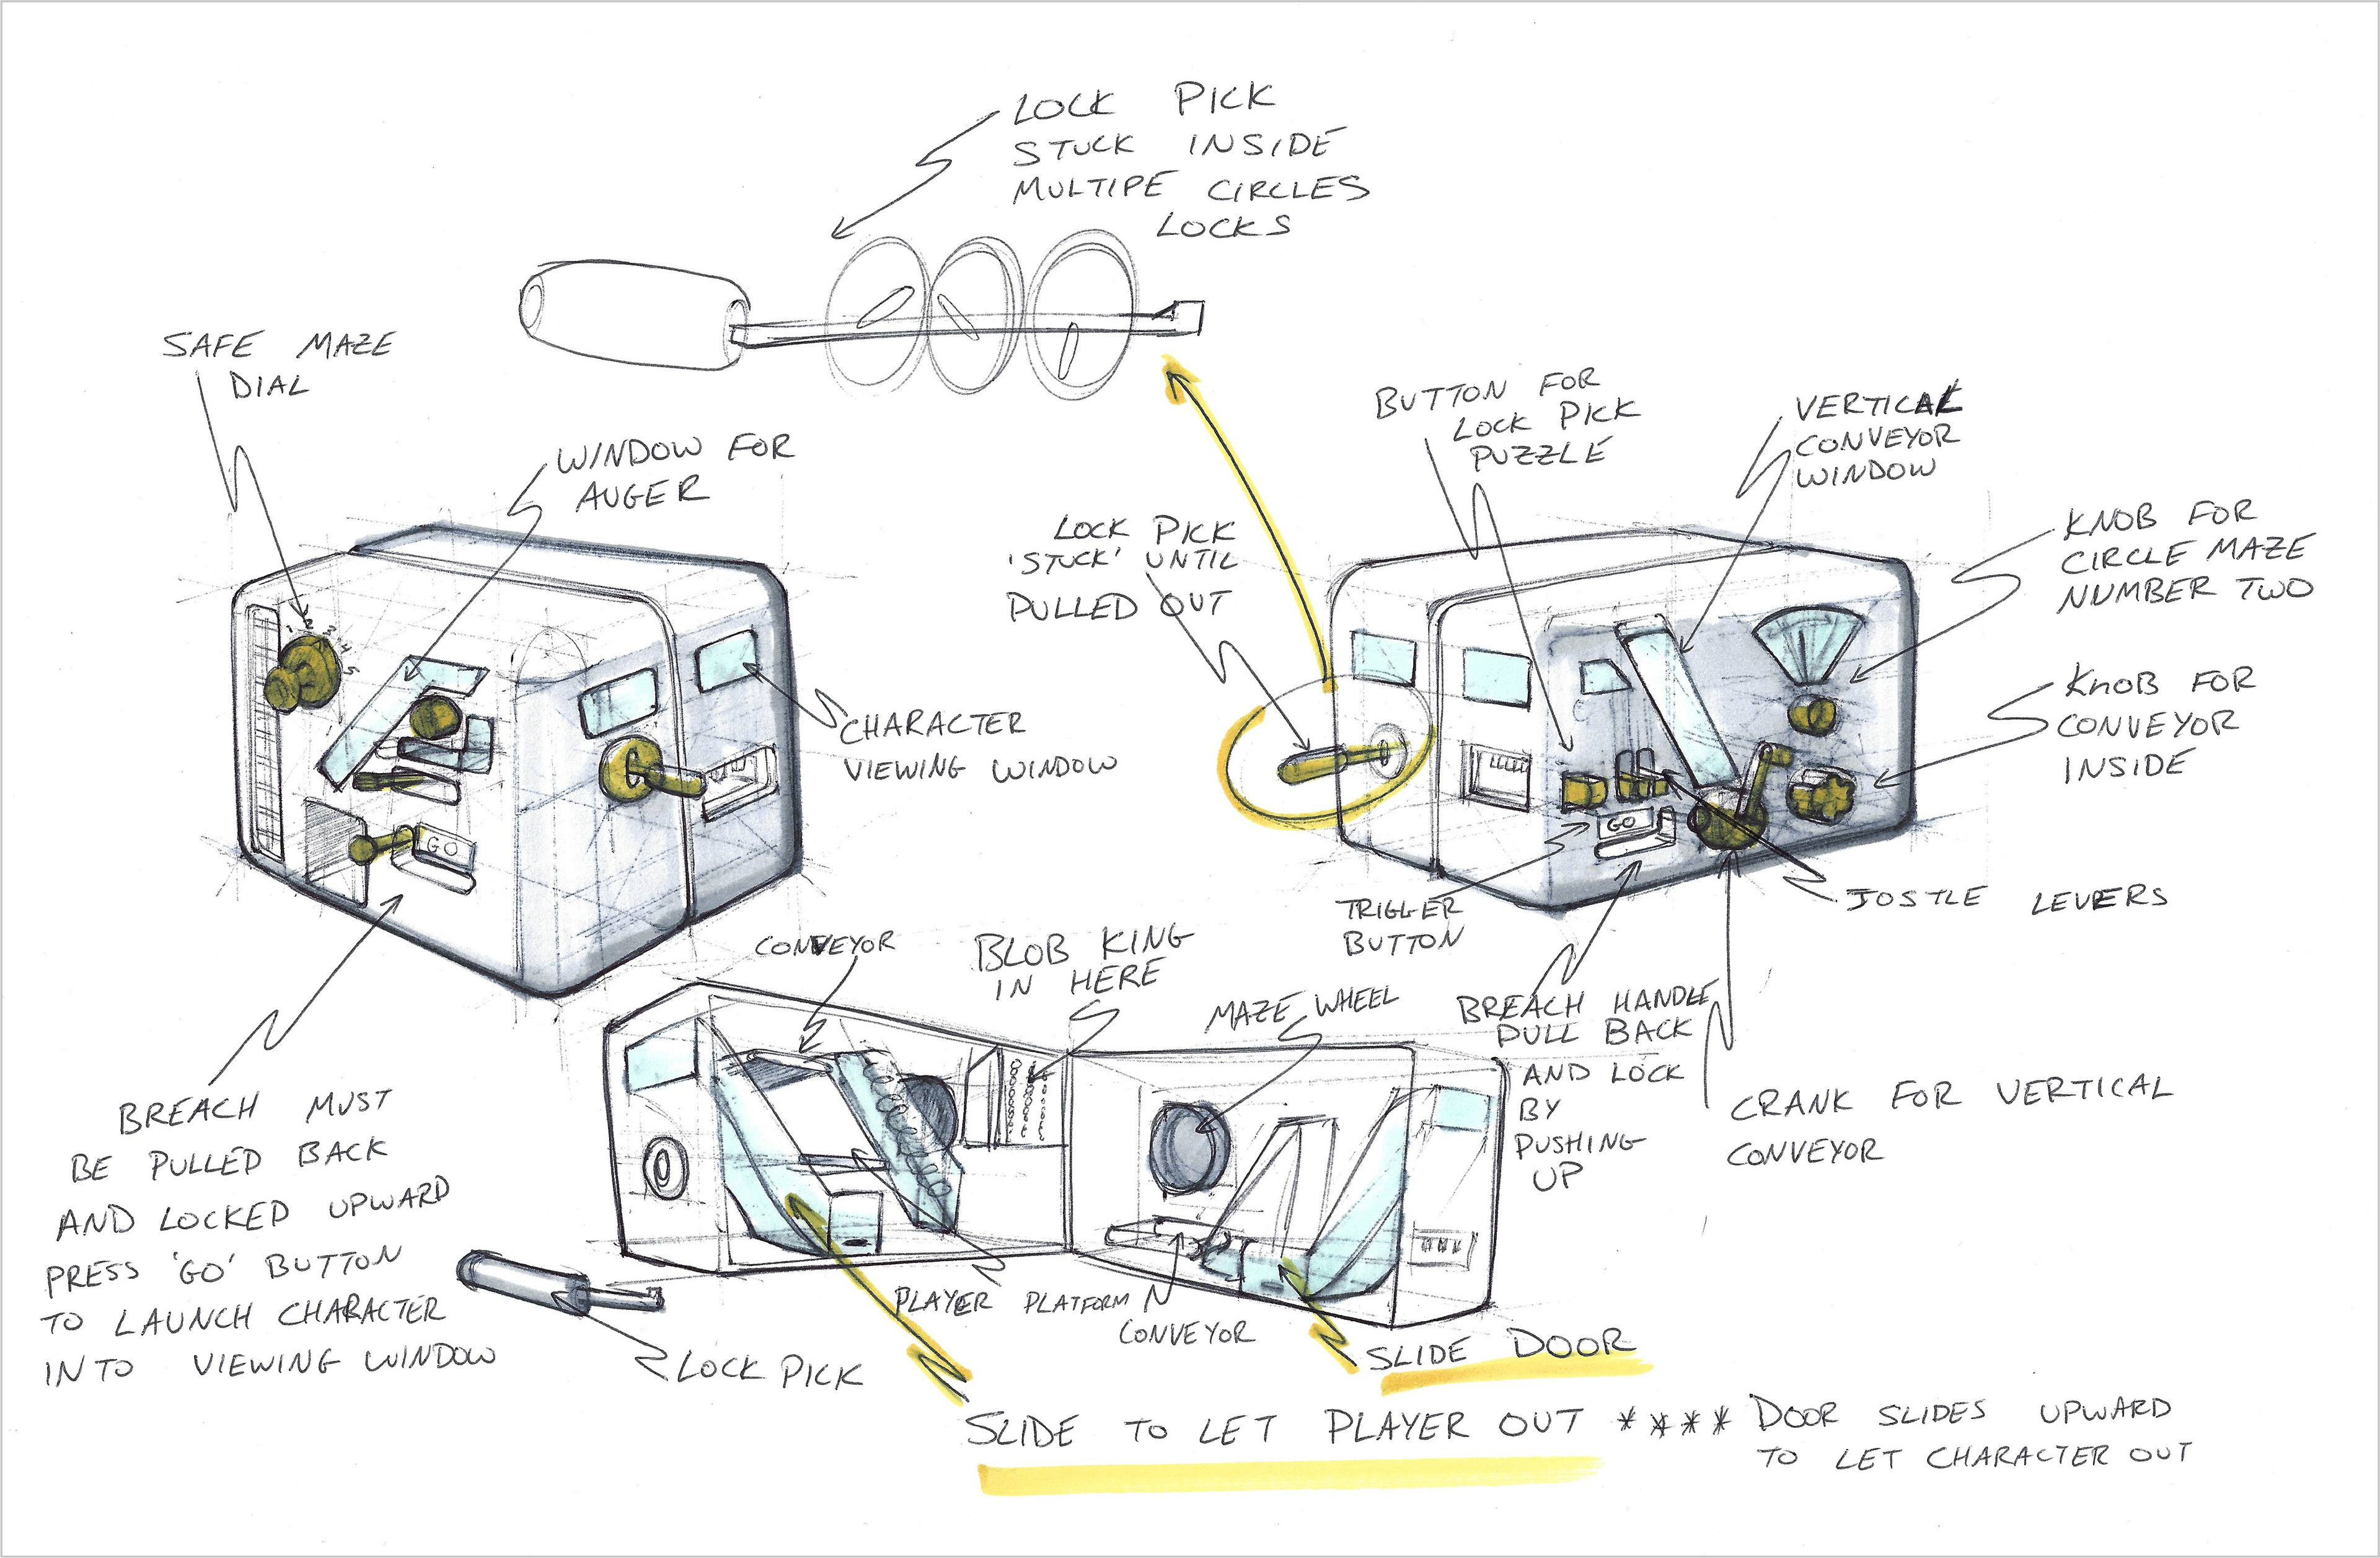 LOCK PICK
STUCK INSIDE
MULTIPE CIRCLES
LOCKS
SAFE MAZE
DIAL
WINDOW FOR
AUGER
1 2 3 4 5
GO
CHARACTER
VIEWING WINDOW
LOCK PICK
'STUCK' UNTIL
PULLED OUT
BUTTON FOR
LOCK PICK
PUZZLE
VERTICAL
CONVEYOR
WINDOW
KNOB FOR
CIRCLE MAZE
NUMBER TWO
KNOB FOR
CONVEYOR
INSIDE
GO
TRIGGER
BUTTON
JOSTLE LEVERS
BREACH HANDLE
PULL BACK
AND LOCK
BY
PUSHING
UP
CRANK FOR VERTICAL
CONVEYOR
CONVEYOR
BLOB KING
IN HERE
MAZE WHEEL
BREACH MUST
BE PULLED BACK
AND LOCKED UPWARD
PRESS 'GO' BUTTON
TO LAUNCH CHARACTER
INTO VIEWING WINDOW
LOCK PICK
PLAYER PLATFORM
CONVEYOR
SLIDE DOOR
SLIDE TO LET PLAYER OUT **** DOOR SLIDES UPWARD
TO LET CHARACTER OUT